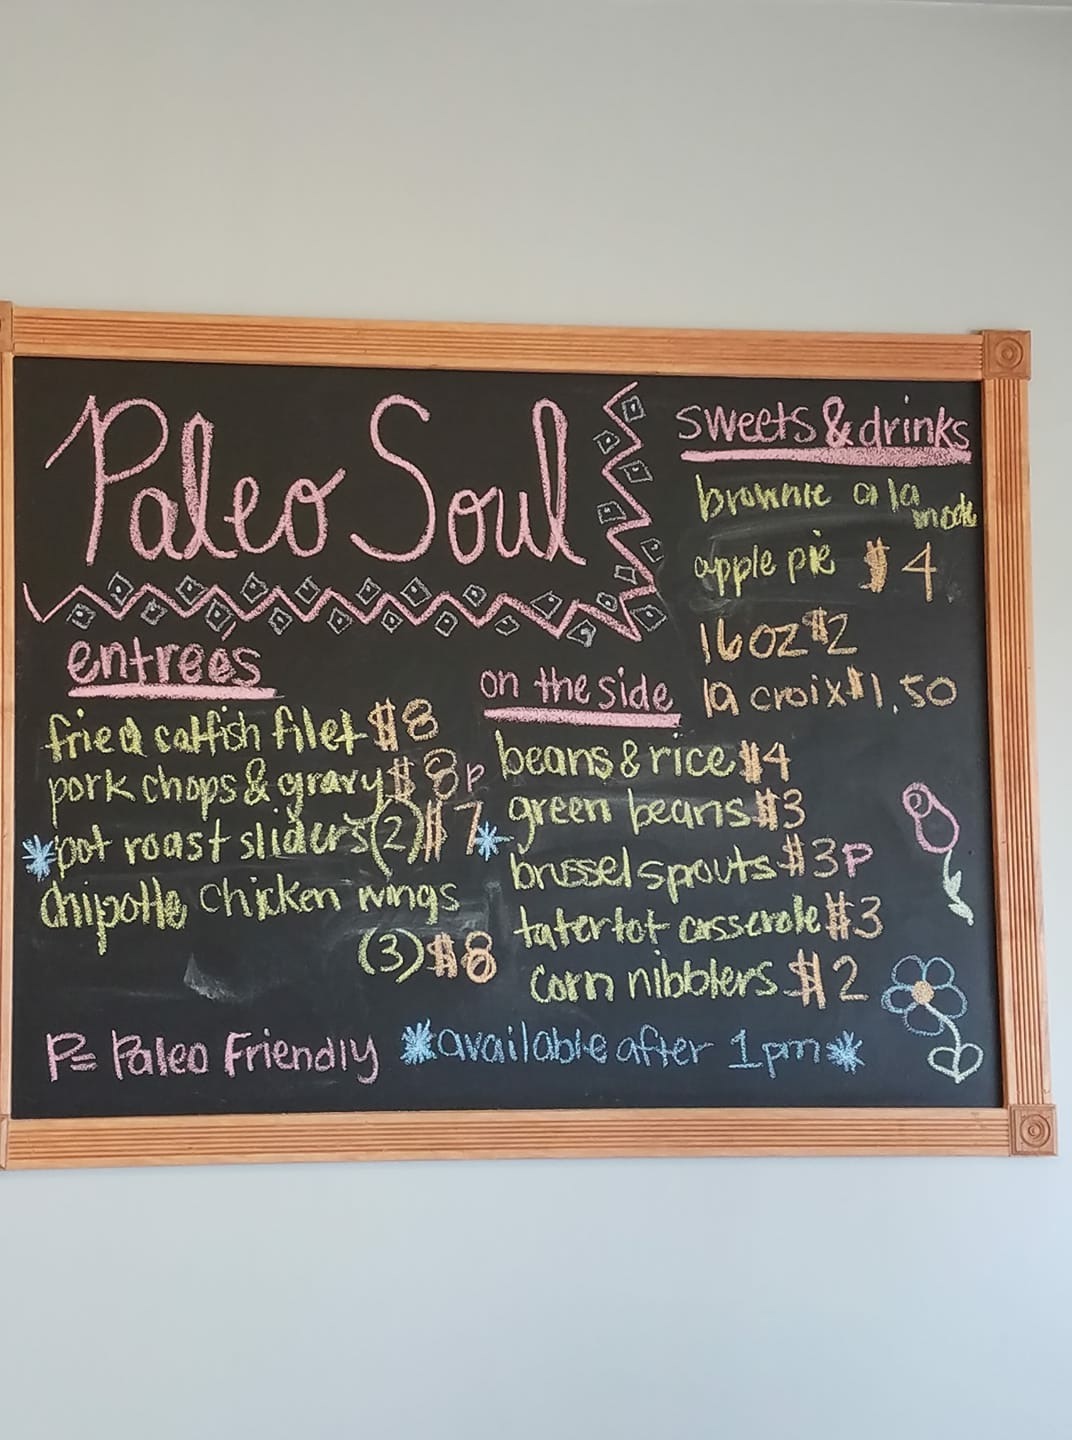 Paleo Soul
entreés
fried catfish filet $8
pork chops & gravy $8 P
*pot roast sliders (2) $7*
chipotle chicken wings
(3) $8
on the side
beans & rice $4
green beans $3
brussel sprouts $3 P
tatertot casserole $3
corn nibblers $2
sweets & drinks
brownie a la
mode
apple pie $4
16oz $2
la croix $1.50
P= Paleo Friendly
*available after 1pm*